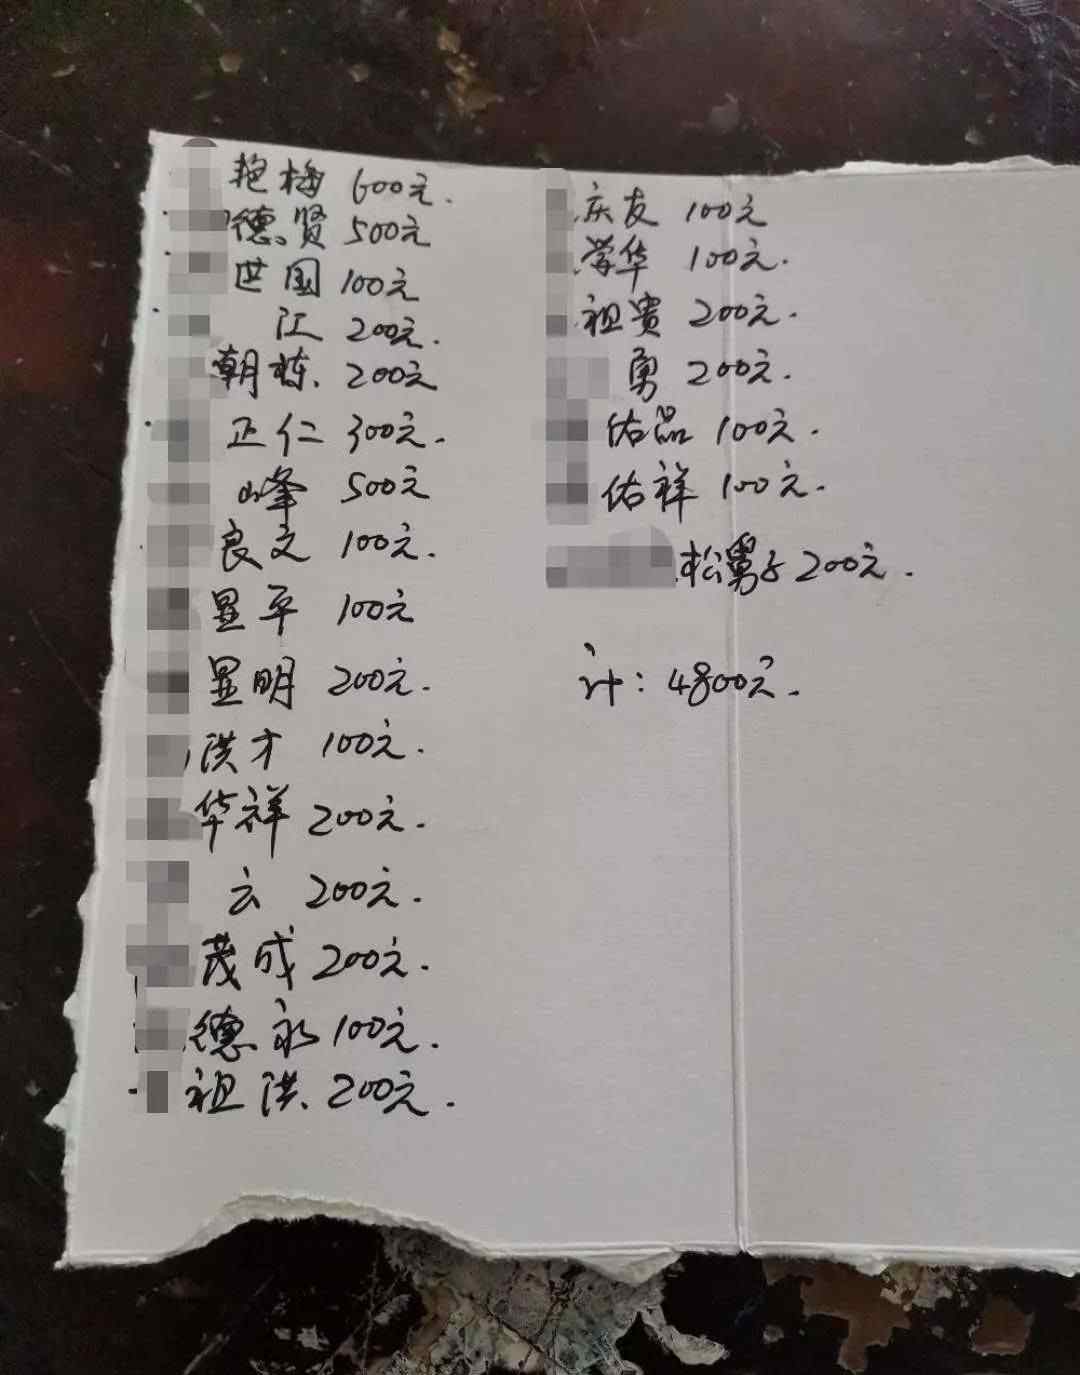 艳梅 600元.
德贤 500元
世国 100元
江 200元.
朝栋. 200元
正仁 300元.
山峰 500元
良文 100元.
显平 100元
显明 200元.
洪才 100元.
华祥 200元.
云 200元.
茂成 200元.
德永 100元.
祖洪. 200元.
庆友 100元
学华 100元.
祖贵 200元.
勇 200元.
佑品 100元.
佑祥 100元.
松舅子 200元.
计: 4800元.